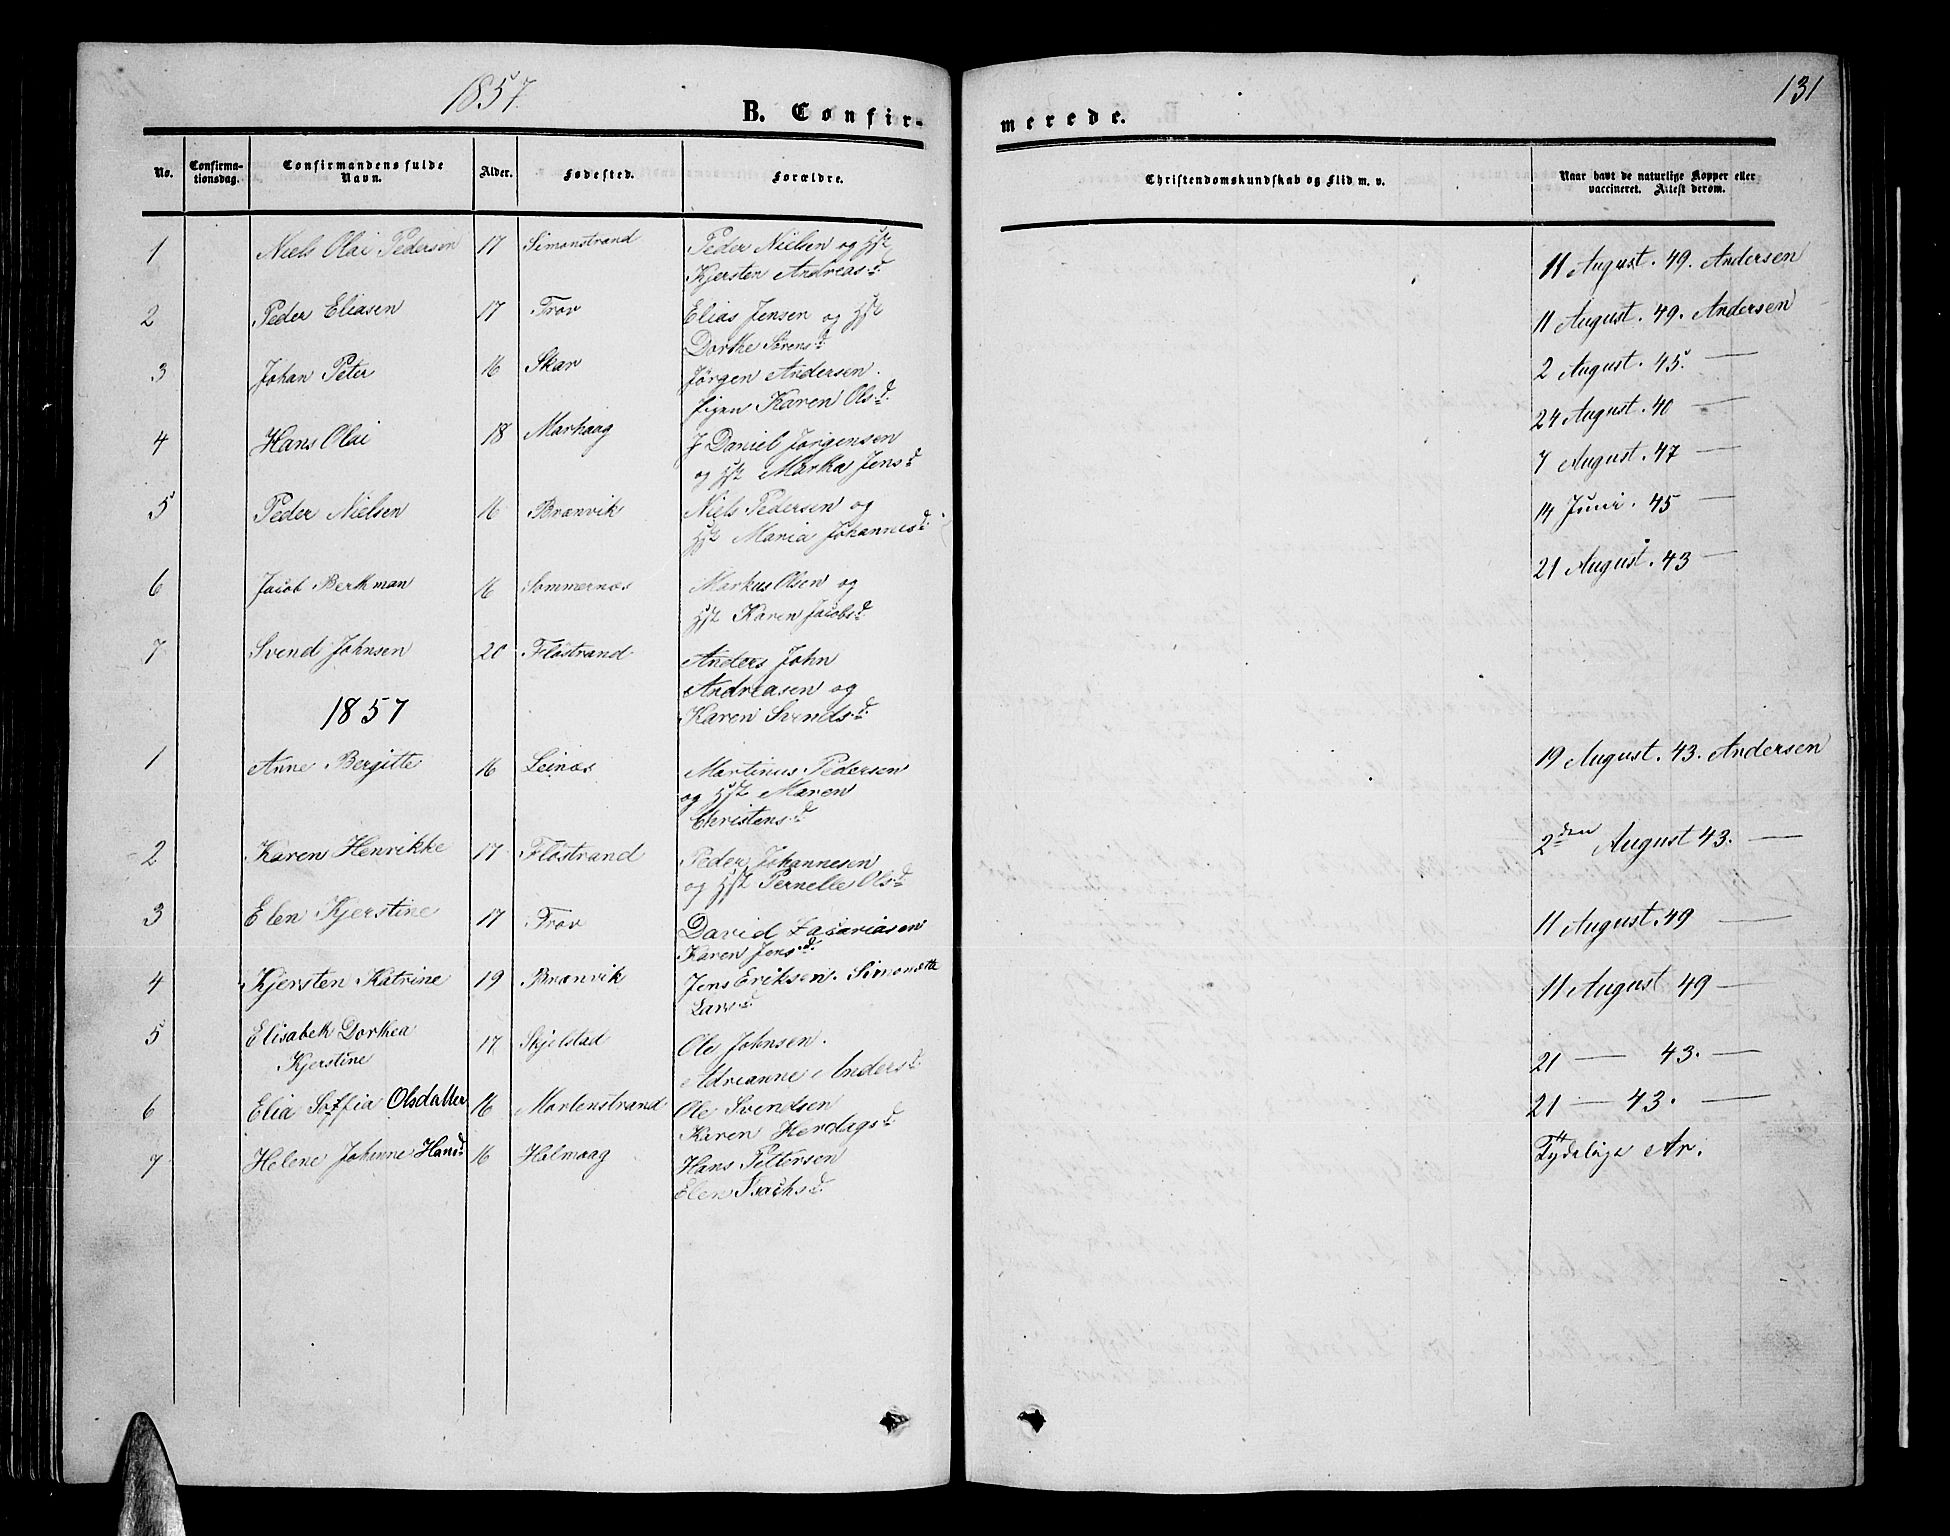 1857
B. Confirmerede.
131
No.
Confirma-
tionsdag.
Confirmandens fulde
Navn.
Alder.
Fødested.
Forældre.
Christendomskundskab og Flid m. v.
Naar havt de naturlige Kopper eller
vaccineret. Attest derom.
1 Niels Olai Pedersen 17 Simonstrand Peder Nielsen og
Kjersten Andreasd. 11 August. 49. Andersen
2 Peder Eliasen 17 Trov Elias Jensen og
Dorthe Sørensd. 11 August. 49. Andersen
3 Johan Peter 16 Skar Jørgen Andersen. 2 August. 45. —
Pigen Karen Olsd. 24 August. 40 —
4 Hans Olai 18 Marhaag J Daniel Jørgensen
og Martha Jensd. 7 August. 47 —
5 Peder Nielsen 16 Brænvik Niels Pedersen og 14 Juni. 45 —
Maria Johannesd.
6 Jacob Berthman 16 Sommernæs Markus Olsen og 21 August. 43 —
Karen Jacobsd.
7 Svend Johnsen 20 Flostrand Anders John
Andreasen og
1857 Karen Svendsd.
1 Anne Bergitte 16 Leinæs Martinus Pedersen 19 August. 43. Andersen
og Maren
Christensd.
2 Karen Henrikke 17 Flostrand Peder Johannesen 2den August 43. —
og Pernelle Olsd.
3 Elen Kjerstine 17 Trov David Zacariasen 11 August. 49 —
Karen Jensd.
4 Kjersten Katrine 19 Brænvik Jens Eriksen. Simonette 11 August 49 —
Larsd.
5 Elisabeth Dorthea 17 Skjelstad Ole Johnsen. 21 — 43. —
Kjerstine Adrianne Andersd.
6 Elia Soffia Olsdatter 16 Mortenstrand Ole Svendsen 21 — 43. —
Karen Herdagsd.
7 Helene Johanne Hansd. 16 Holmaag Hans Pettersen Tydelige Ar.
Elen Isachsd.